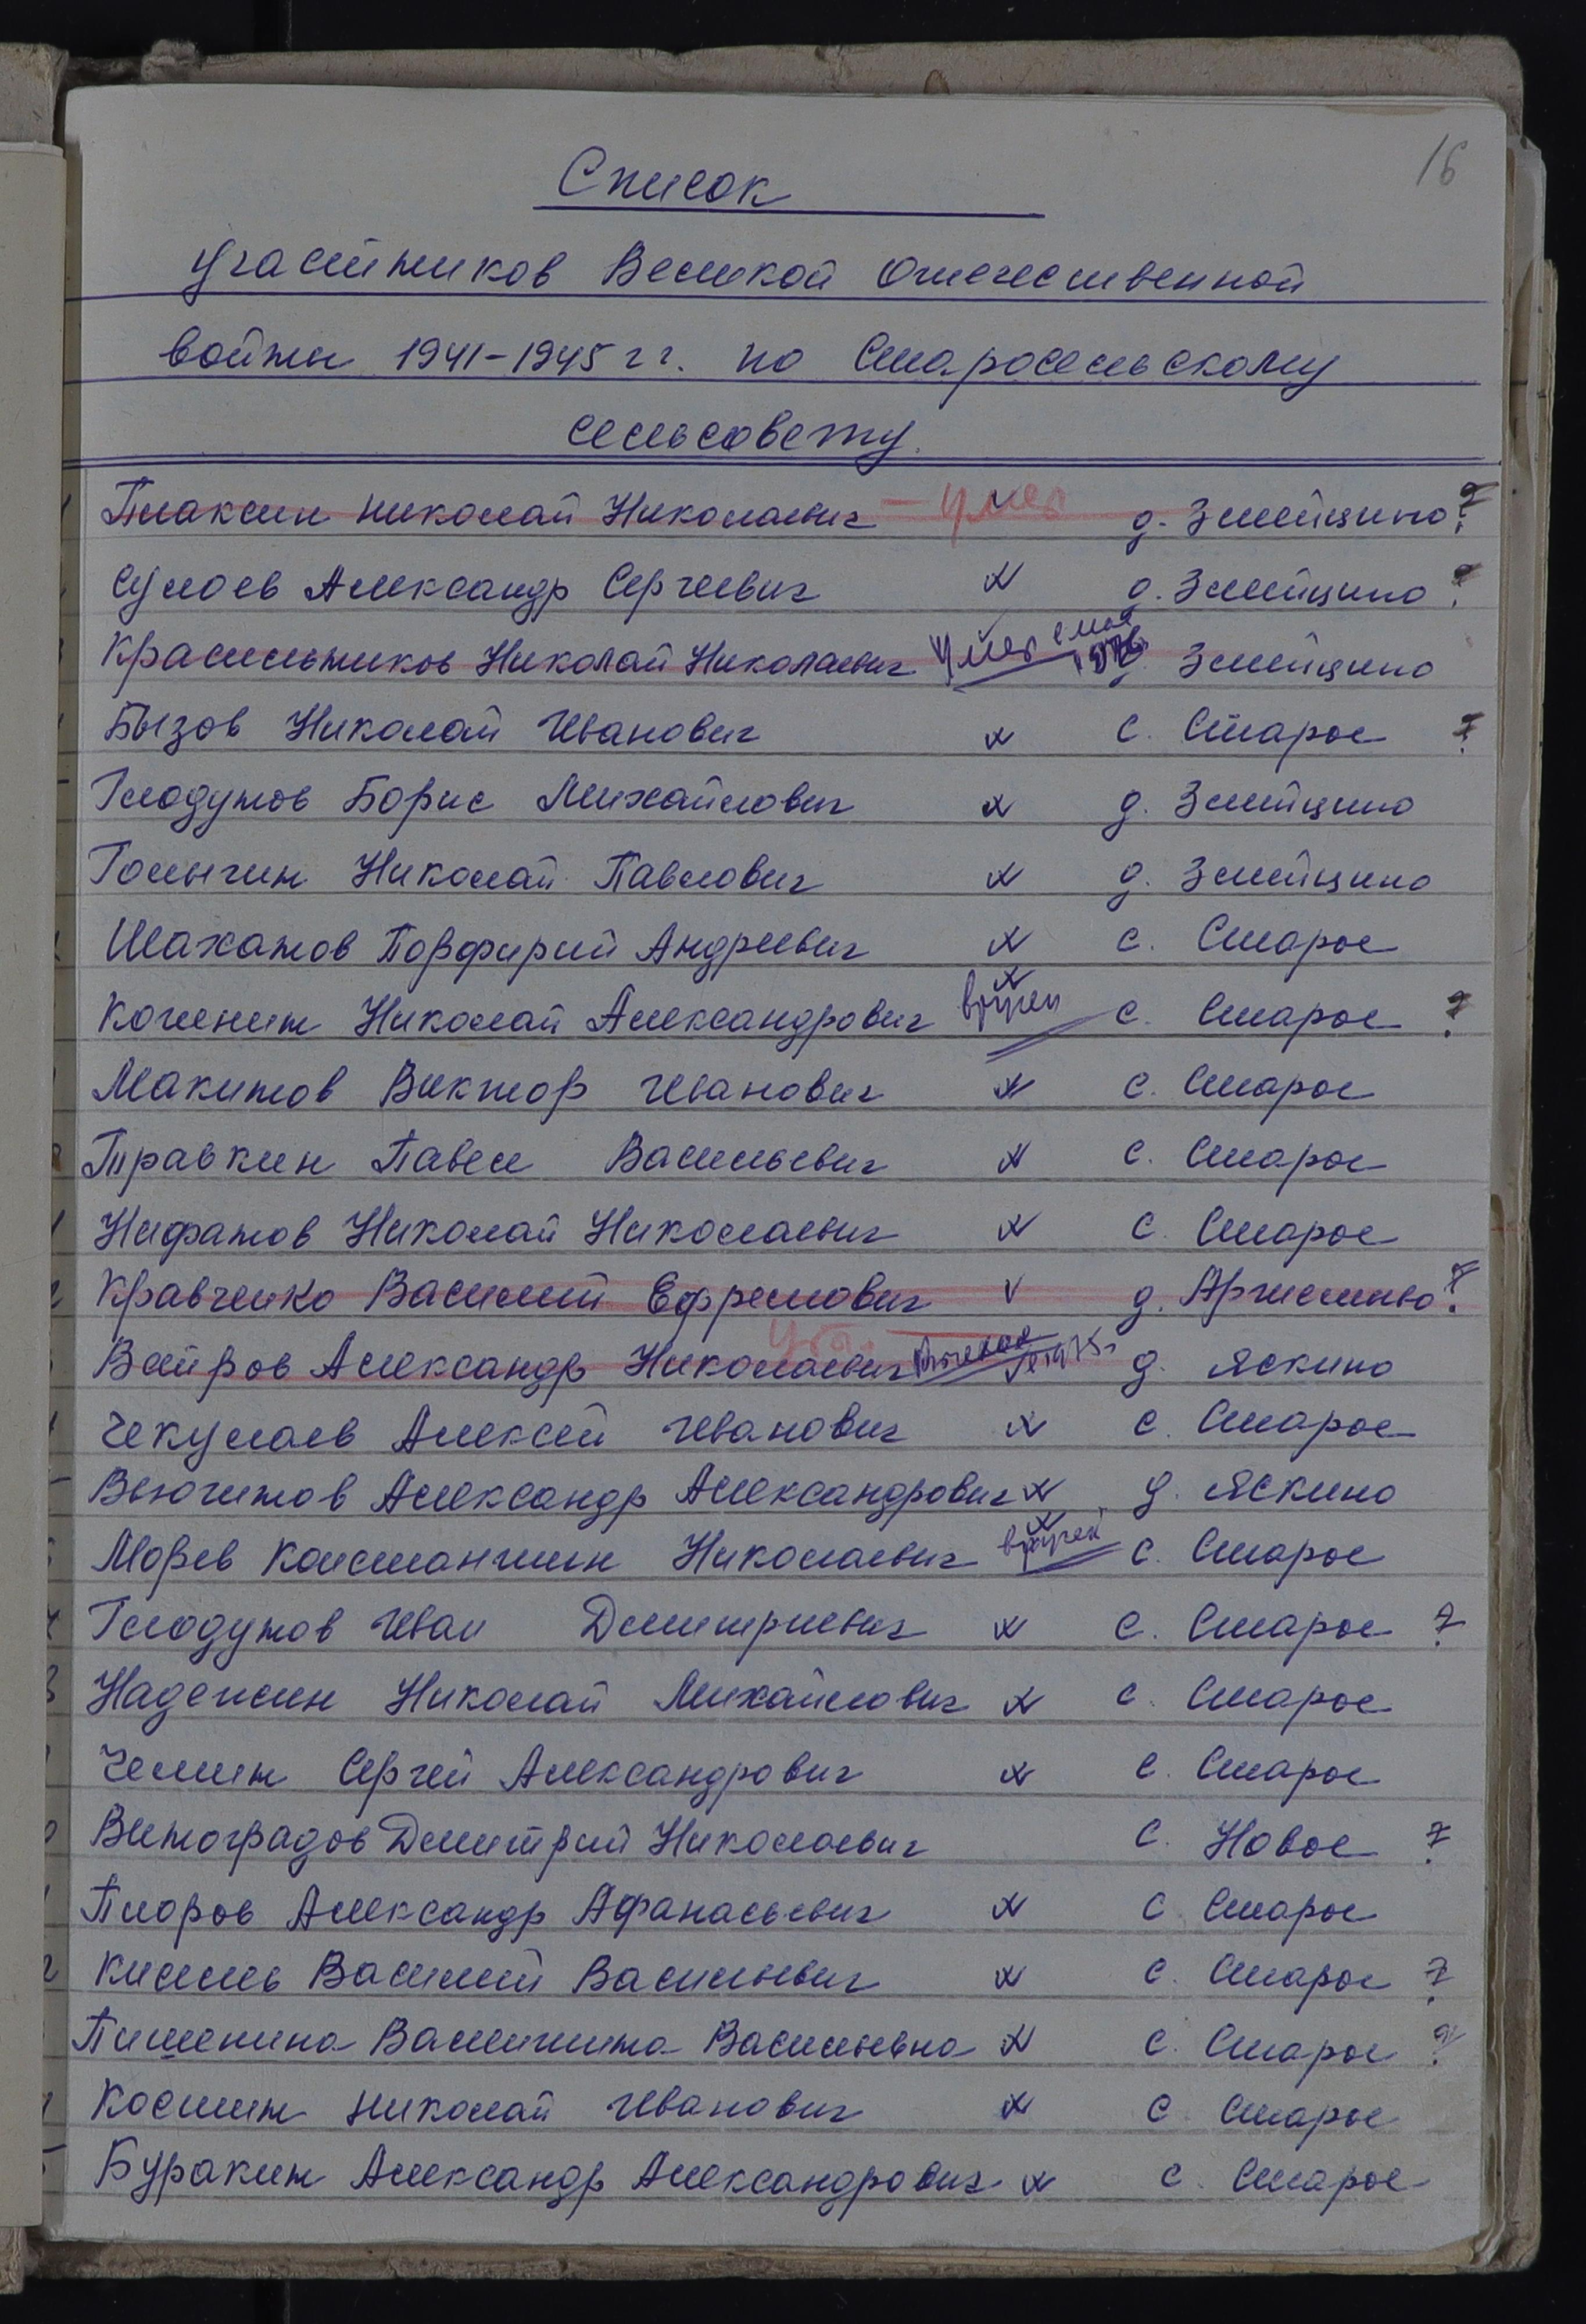 16
Список
участников Великой Отечественной
войны 1941-1945 гг. по Старосельскому
сельсовету.
Плаксин Николай Николаевич - умер д. Змейцино ?
Сулоев Александр Сергеевич д. Змейцино ?
Красильников Николай Николаевич Умер 1976 д. Змейцино
Бызов Николай Иванович с. Старое ?
Глодунов Борис Михайлович д. Змейцино
Голыгин Николай Павлович д. Змейцино
Шаханов Порфирий Андреевич с. Старое
Коченин Николай Александрович вручен с. Старое ?
Макинов Виктор Иванович с. Старое
Травкин Павел Васильевич с. Старое
Нифанов Николай Николаевич с. Старое
Кравченко Василий Ефремович V д. ?
Вайров Александр Николаевич 1975 г. д. Яскино
Чекулаев Алексей Иванович с. Старое
Вьючинов Александр Александрович д. Яскино
Морев Константин Николаевич вручен с. Старое
Глодунов Иван Дмитриевич с. Старое ?
Надежин Николай Михайлович с. Старое
Челнин Сергей Александрович с. Старое
Виноградов Дмитрий Николаевич с. Новое ?
Пиоров Александр Афанасьевич с. Старое
Кисель Василий Васильевич с. Старое ?
Пишенина Валентина Васильевна с. Старое ?
Космин Николай Иванович с. Старое
Буракин Александр Александрович с. Старое